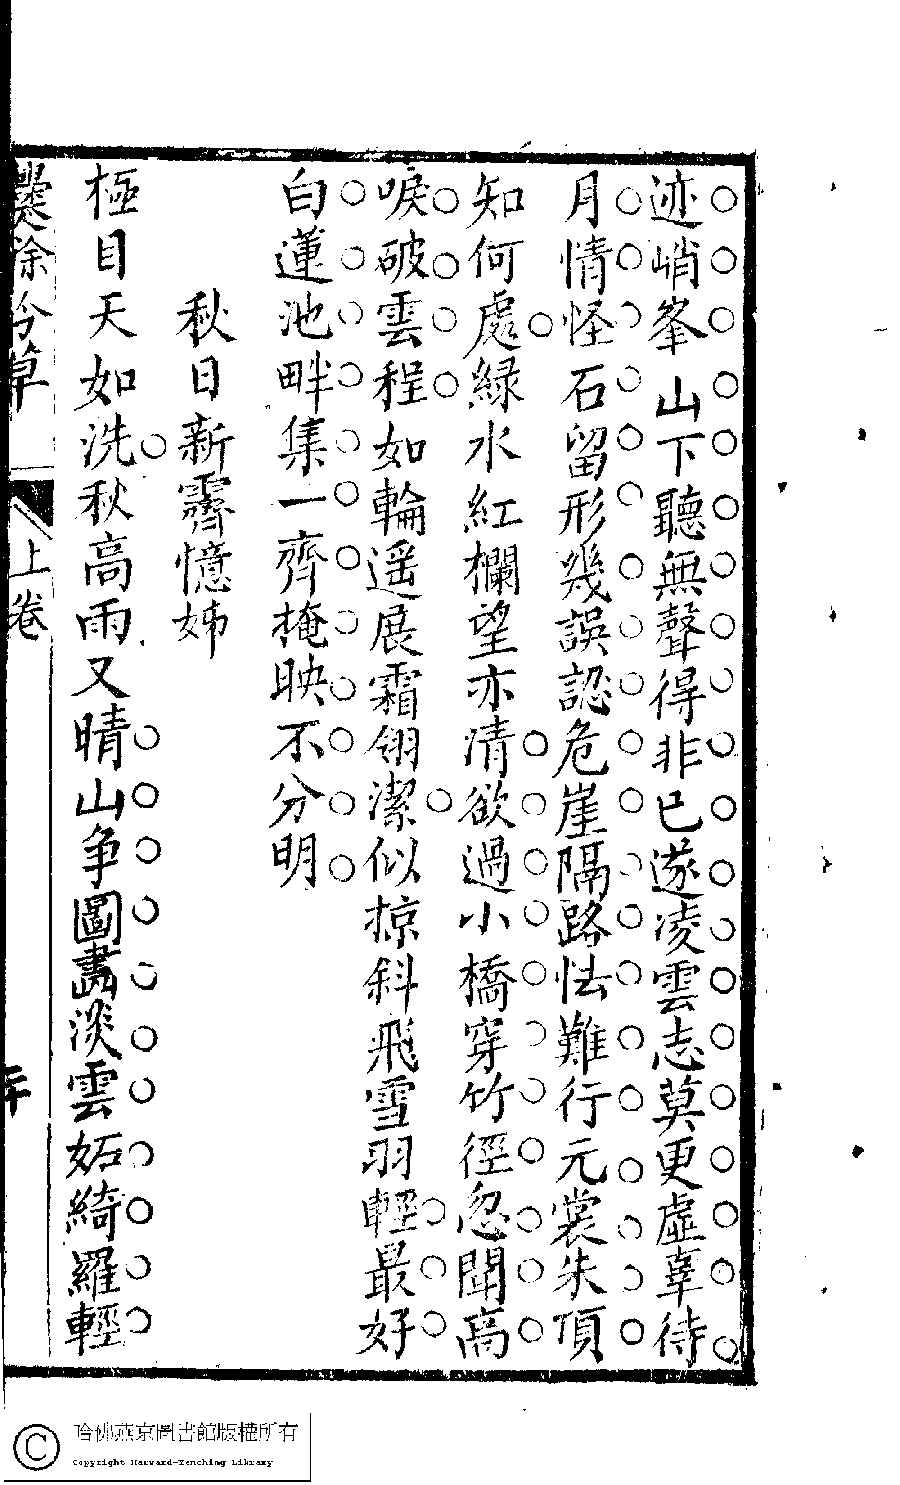 迹峭峯山下聽無聲得非已遂凌雲志莫更虛辜待
月情怪石留形幾誤認危崖隔路怯難行元裳朱頂
知何處綠水紅欄望亦清欲過小橋穿竹徑忽聞高
唳破雲程如輪遥展霜翎潔似掠斜飛雪羽輕最好
白蓮池畔集一齊掩映不分明
秋日新霽憶姊
極目天如洗秋高雨又晴山争圖畵淡雲妬綺羅輕
爨餘吟草
上卷
哈佛燕京圖書館版權所有
Copyright Harvard-Yenching Library